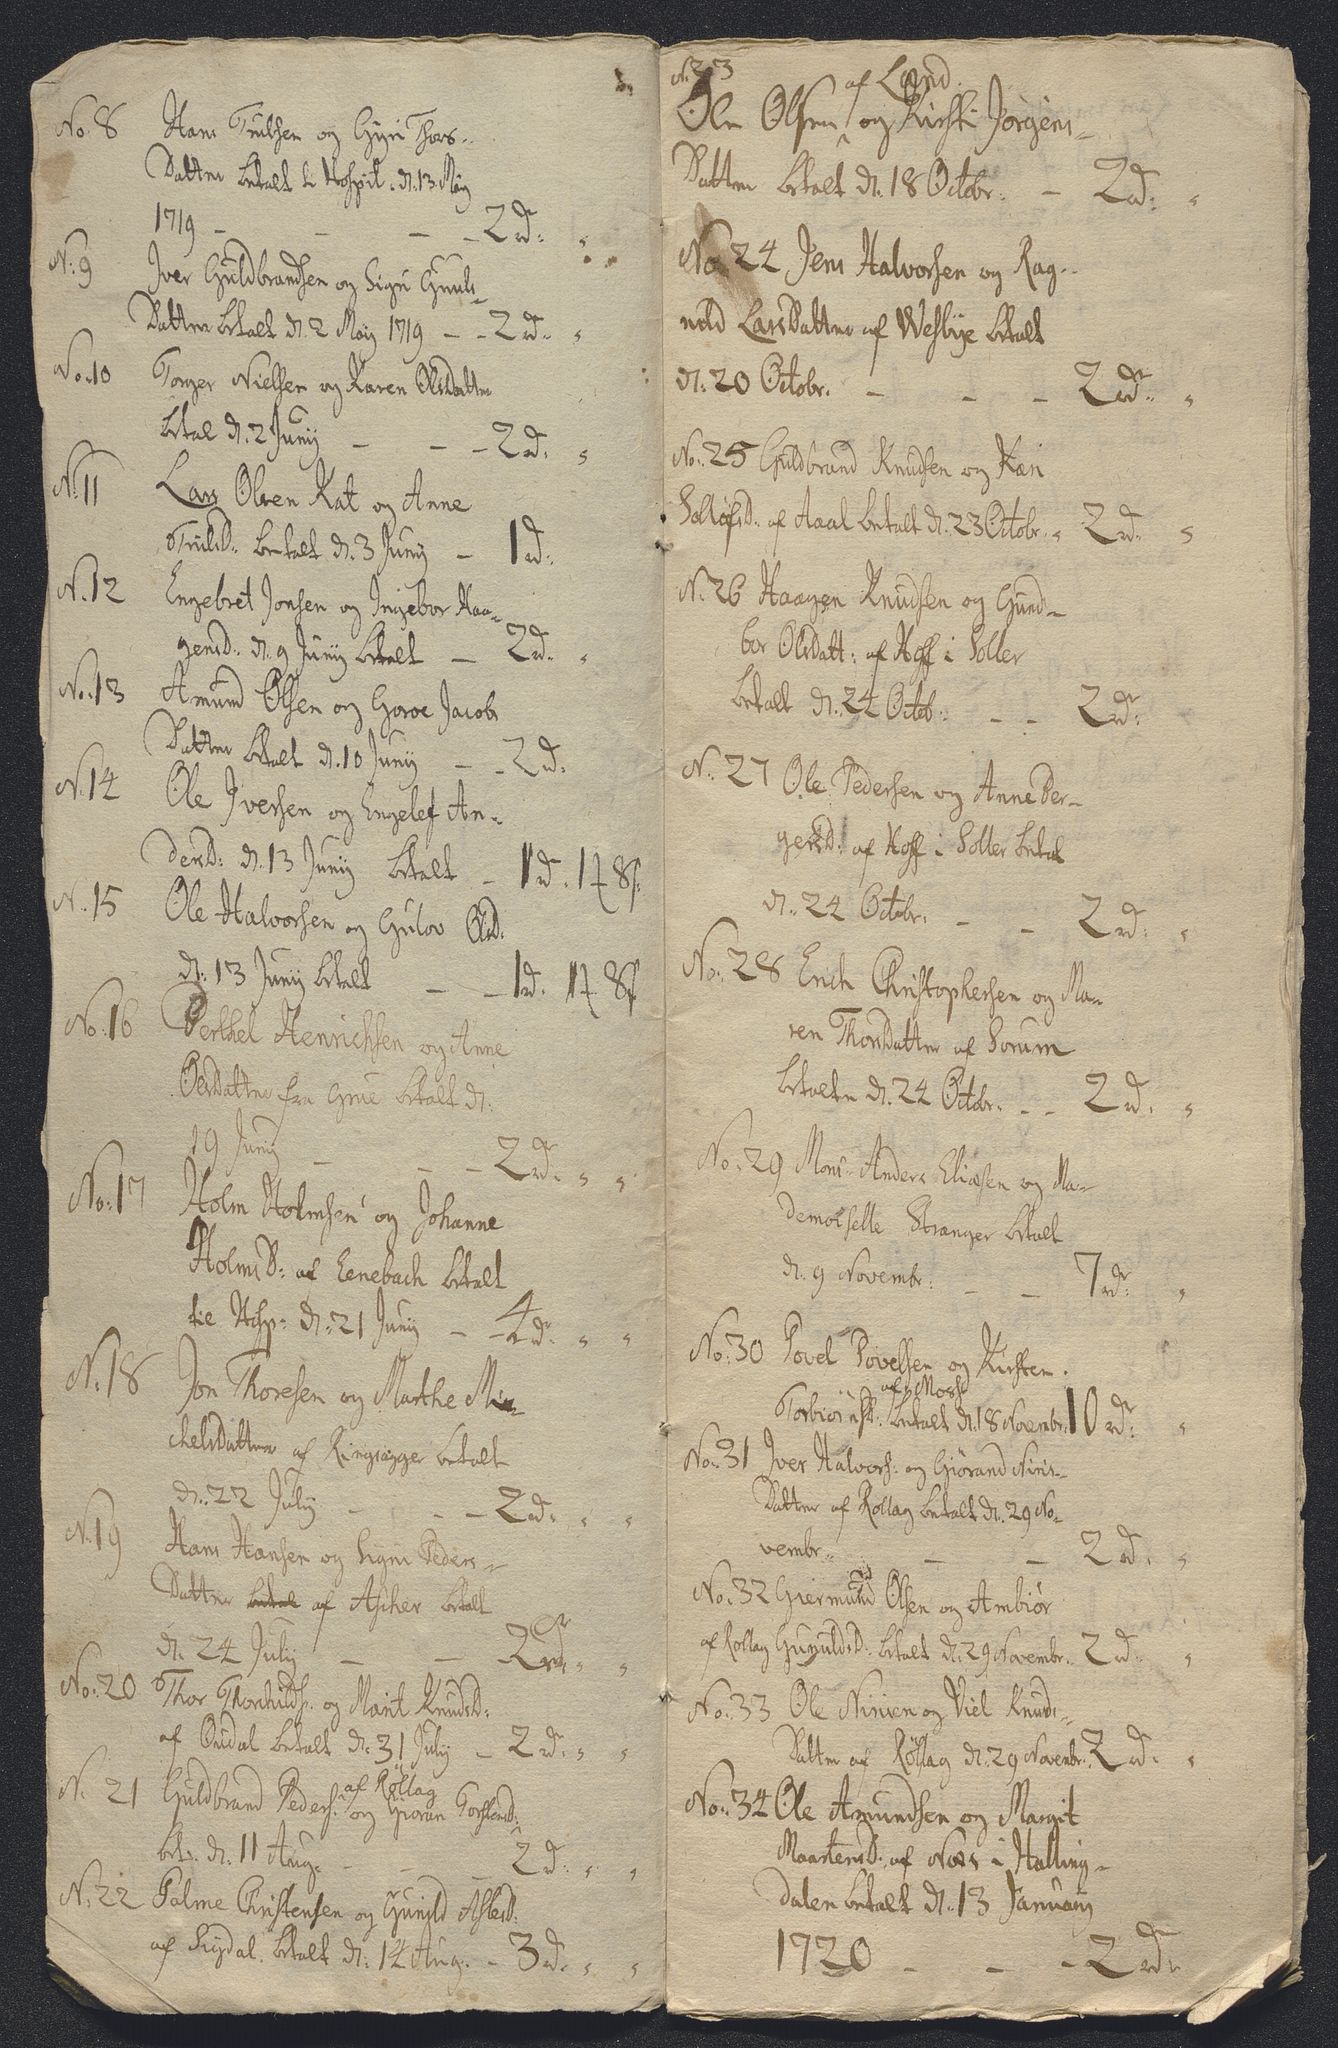 No: 8 Hans Trulsen og Gyri Thors-
Datter betalt til Hospit: d: 13 May
1719 - - - - 2 rd:
N: 9 Iver Guldbrandsen og Signi Gunils-
Datter betalt d: 2 May 1719 - - 2 rd:
No: 10 Torger Nielsen og Karen Olsdatter
betal d: 2 Junij - - - 2 rd:
N: 11 Lars Olsen Kat og Anne
Trulsd: betalt d: 3 Junij - 1 rd:
N: 12 Engebret Jonsen og Ingebor Haa-
gensd: d: 9 Junij betalt - 2 rd:
No: 13 Amund Olsen og Goroe Jacobs
Datter betalt d: 10 Junij - - 2 rd:
N: 14 Ole Iversen og Engelef An-
dersd: d: 13 Junij betalt - 1 rd: 1 f 8 s:
N: 15 Ole Halvorsen og Gulov Olsd:
d: 13 Junij betalt - - 1 rd: 1 f 8 s
No: 16 Berthel Henrichsen og Anne
Olesdatter fra Grue betalt d:
19 Junij - - - 2 rdr:
No: 17 Holm Holmsen og Johanne
Holmsd: af Eenebach betalt
tie Hosp: d: 21 Junij - - 4 rdr:
N: 18 Jon Thoresen og Marthe Mi-
chelsdatter af Ringsager betalt
d: 22 July - - - 2 rd:
N: 19 Hans Hansen og Signi Peders-
Datter betal af Ascher betalt
d: 24 July - - 2 rdr:
No: 20 Thor Thorchilds: og Marit Knudsd:
af Oudal betalt d: 31 July - 2 rdr:
af Rollag
N: 21 Guldbrand Peders: og Gioran Torstensd:
bet: d: 11 Aug: - - - 2 rd:
N: 22 Palme Christensen og Gunild Aslesd:
af Sigdal betalt d: 14 Aug: - 3 rd:
N: 23
af Land
Ole Olsen og Kirsti Jørgens-
Datter betalt d: 18 Octobr: - 2 rd:
No: 24 Jens Halvorsen og Rag-
nild Larsdatter af Westbye betalt
d: 20 Octobr: - - - 2 rdr:
No: 25 Guldbrand Knudsen og Kari
Sollofsd: af Aaal betalt d: 23 Octobr: 2 rd:
N: 26 Haagen Knudsen og Gund-
bor Olsdatt: af Hoff i Soller
betalt d: 24 Octob: - - 2 rdr:
N: 27 Ole Pedersen og Anne Ber-
gersd: af Hoff i Soller betal
d: 24 Octobr: - - 2 rd:
No: 28 Erich Christophersen og Ma-
ren Thorsdatter af Sorum
betalte d: 24 Octobr: - - 2 rd:
No: 29 Mons: Anders Eliæsen og Ma-
demoiselle Stranger betalt
d: 9 Novembr: - - 7 rdr:
No: 30 Povel Povelsen og Kirsten
af Moss
Torbiörnsd: betalt d: 18 Novembr: 10 rdr:
No: 31 Iver Halvors: og Giörand Niris-
Datter af Rollag betalt d: 29 No-
vembr: - - 2 rd:
No: 32 Giermund Olsen og Ambiör
af Rollag Gunuldsd: betalt d: 29 Novembr: 2 rd:
No: 33 Ole Nirisen og Viel Knuds-
Datter af Rollag d: 29 Novembr: 2 rd:
No: 34 Ole Amundsen og Margit
Maartensd: af Næs i Halling-
dalen betalt d: 13 Januarij
1720 - - - 2 rd: